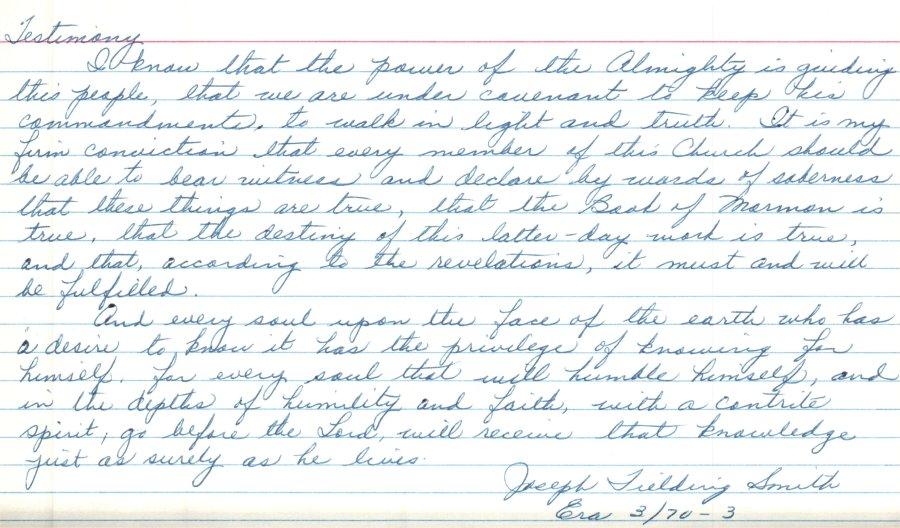 Testimony
I know that the power of the Almighty is guiding
this people, that we are under covenant to keep his
commandments, to walk in light and truth. It is my
firm conviction that every member of this Church should
be able to bear witness and declare by words of soberness
that these things are true, that the Book of Mormon is
true, that the destiny of this latter-day work is true,
and that, according to the revelations, it must and will
be fulfilled.
And every soul upon the face of the earth who has
a desire to know it has the privilege of knowing for
himself, for every soul that will humble himself, and
in the depths of humility and faith, with a contrite
spirit, go before the Lord, will receive that knowledge
just as surely as he lives.
Joseph Fielding Smith
Era 3/70-3